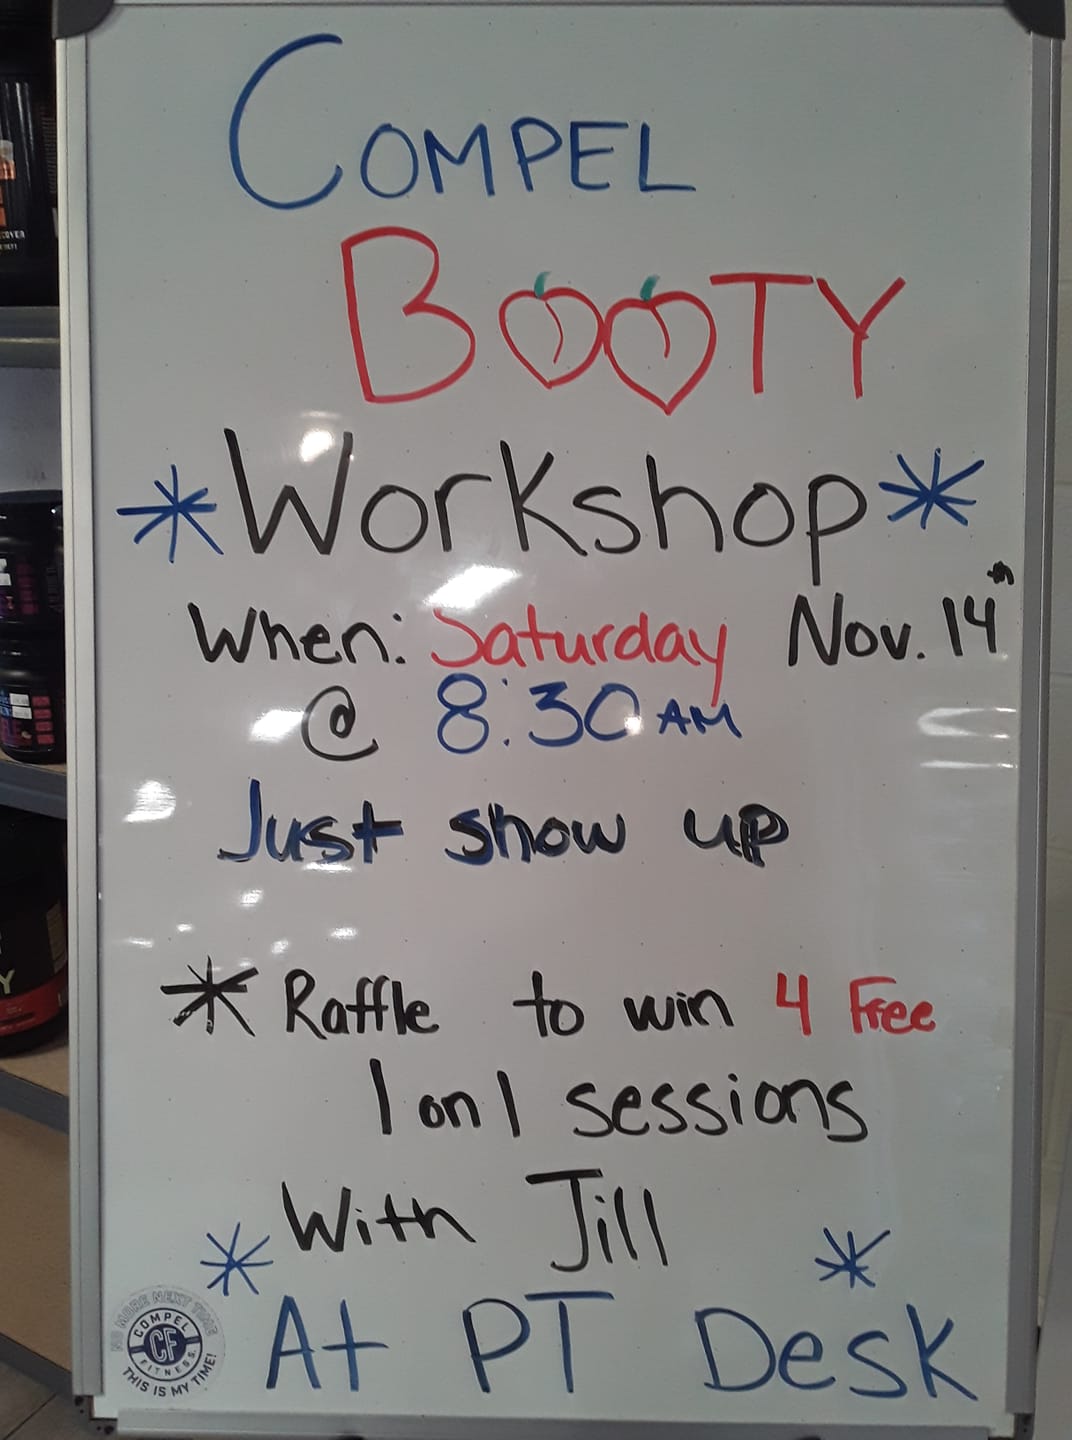 COMPEL
BOOTY
*Workshop*
When: Saturday Nov. 14th
@ 8:30 AM
Just show up
* Raffle to win 4 Free
1 on 1 sessions
With Jill
* *
At PT Desk
NO MORE NEXT TIME
COMPEL
CF
FITNESS
THIS IS MY TIME!